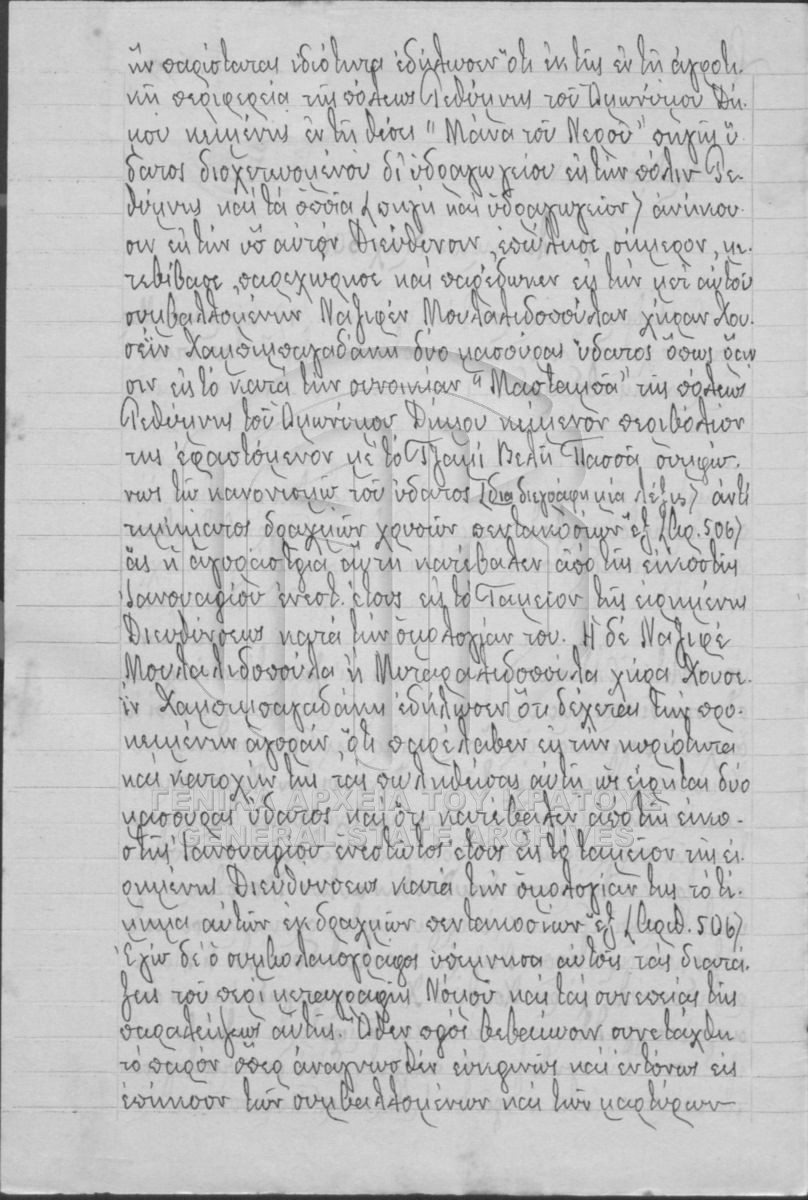 ἣν παρίσταται ἰδιότητα ἐδήλωσεν ὅτι ἐκ τῆς ἐν τῇ ἀγροτι-
κῇ περιφερείᾳ τῆς πόλεως Ρεθύμνης τοῦ Ὁμωνύμου Δή-
μου κειμένης ἐν τῇ θέσει "Μάνα τοῦ Νεροῦ" πηγῆς ὕ-
δατος διοχετευομένου δι' ὑδραγωγείου εἰς τὴν πόλιν Ρε-
θύμνης καὶ τὰ ὁποῖα (πηγὴ καὶ ὑδραγωγεῖον) ἀνήκου-
σιν εἰς τὴν ὑπ' αὐτὸν Διεύθυνσιν, ἐπώλησε σήμερον, με-
τεβίβασε, παρεχώρησε καὶ παρέδωκεν εἰς τὴν μετ' αὐτοῦ
συμβαλλομένην Ναζιφὲν Μουλαλιδοπούλαν χήραν Χου-
σεῒν Χαμπιμπαγαδάκη δύο μασούρας ὕδατος ὅπως
σιν εἰς τὸ κατὰ τὴν συνοικίαν "Μασταμπᾶ" τῆς πόλεως
Ρεθύμνης τοῦ Ὁμωνύμου Δήμου κείμενον περιβόλιον
της ἐφαπτόμενον μὲ τὸ Τζαμὶ Βελῆ Πασσᾶ συμφώ-
νως τῷ κανονισμῷ τοῦ ὕδατος (διεγράφη μία λέξις) ἀντὶ
τιμήματος δραχμῶν χρυσῶν πεντακοσίων ἕξ (Ἀρ. 506)
ἃς ἡ ἀγοράστρια αὕτη κατέβαλεν ἀπὸ τῆς εἰκοστῆς
Ἰανουαρίου ἐνεστ. ἔτους εἰς τὸ Ταμεῖον τῆς εἰρημένης
Διευθύνσεως κατὰ τὴν ὁμολογίαν του. Ἡ δὲ Ναζιφὲ
Μουλαλιδοπούλα ἢ Μυταραλιδοπούλα χήρα Χουσε-
ῒν Χαμπιμπαγαδάκη ἐδήλωσεν ὅτι δέχεται τὴν προ-
κειμένην ἀγοράν, ὅτι παρέλαβεν εἰς τὴν κυριότητα
καὶ κατοχήν της τὰς πωληθείσας αὐτῇ ὡς εἴρηται δύο
μασούρας ὕδατος καὶ ὅτι κατέβαλεν ἀπὸ τῆς εἰκο-
στῆς Ἰανουαρίου ἐνεστῶτος ἔτους εἰς τὸ ταμεῖον τῆς εἰ-
ρημένης Διευθύνσεως κατὰ τὴν ὁμολογίαν της τὸ τί-
μημα αὐτῶν ἐκ δραχμῶν πεντακοσίων ἕξ (Ἀριθ. 506)
Ἐγὼ δὲ ὁ συμβολαιογράφος ὑπέμνησα αὐτοῖς τὰς διατά-
ξεις τοῦ περὶ μεταγραφῆς Νόμου καὶ τὰς συνεπείας τῆς
παραλείψεως αὐτῆς. Ὅθεν πρὸς βεβαίωσιν συνετάχθη
τὸ παρὸν ὅπερ ἀναγνωσθὲν εὐκρινῶς καὶ ἐντόνως εἰς
ἐπήκοον τῶν συμβαλλομένων καὶ τῶν μαρτύρων
ΓΕΝΙΚΑ ΑΡΧΕΙΑ ΤΟΥ ΚΡΑΤΟΥΣ
GENERAL STATE ARCHIVES